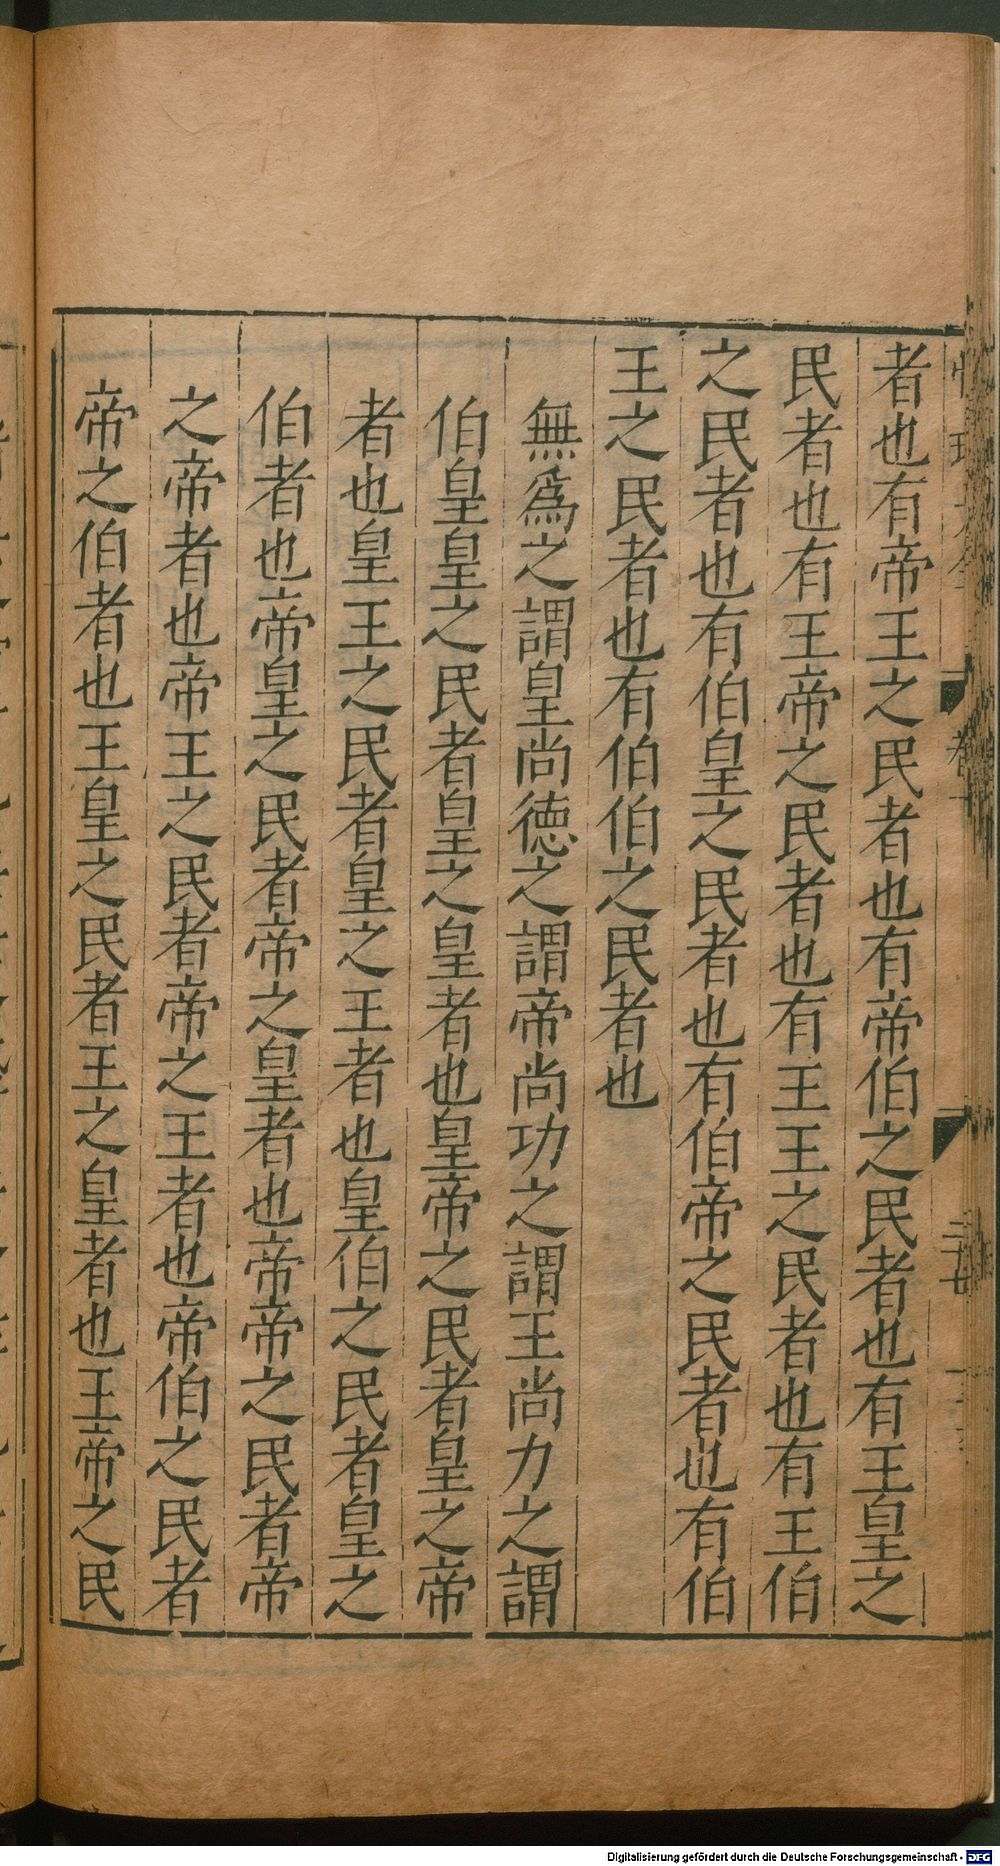 者也有帝王之民者也有帝伯之民者也有王皇之
民者也有王帝之民者也有王王之民者也有王伯
之民者也有伯皇之民者也有伯帝之民者也有伯
王之民者也有伯伯之民者也
無爲之謂皇尚德之謂帝尚功之謂王尚力之謂
伯皇皇之民者皇之皇者也皇帝之民者皇之帝
者也皇王之民者皇之王者也皇伯之民者皇之
伯者也帝皇之民者帝之皇者也帝帝之民者帝
之帝者也帝王之民者帝之王者也帝伯之民者
帝之伯者也王皇之民者王之皇者也王帝之民
Digitalisierung gefördert durch die Deutsche Forschungsgemeinschaft - DFG